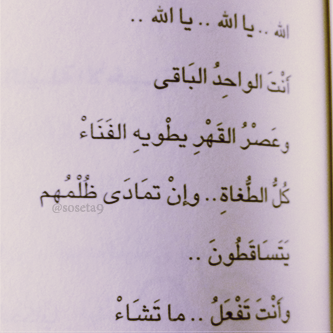 الله .. يا الله .. يا الله ..
أَنْتَ الواحِدُ البَاقى
وعَصْرُ القَهْرِ يطْويهِ الفَنَاءْ
كُلُّ الطُّغاةِ .. وإنْ تمَادَى ظُلْمُهم
@soseta9
يَتَسَاقَطُونَ ..
وأَنْتَ تَفْعَلُ .. ما تَشَاءْ